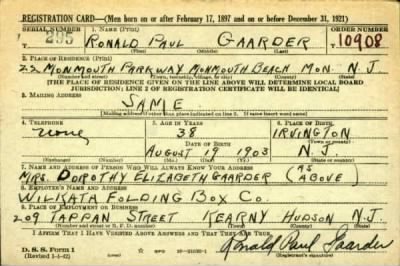 REGISTRATION CARD—(Men born on or after February 17, 1897 and on or before December 31, 1921)
SERIAL NUMBER 1. NAME (Print) ORDER NUMBER
295 RONALD PAUL GAARDER 10908
(First) (Middle) (Last)
2. PLACE OF RESIDENCE (Print)
22 MONMOUTH PARKWAY MONMOUTH BEACH MON. N.J.
(Number and street) (Town, township, village, or city) (County) (State)
[THE PLACE OF RESIDENCE GIVEN ON THE LINE ABOVE WILL DETERMINE LOCAL BOARD
JURISDICTION; LINE 2 OF REGISTRATION CERTIFICATE WILL BE IDENTICAL]
3. MAILING ADDRESS
SAME
[Mailing address if other than place indicated on line 2. If same insert word same]
4. TELEPHONE 5. AGE IN YEARS 6. PLACE OF BIRTH
none 38 IRVINGTON
DATE OF BIRTH (Town or county)
AUGUST 19 1903 N.J.
(Exchange) (Number) (Mo.) (Day) (Yr.) (State or country)
7. NAME AND ADDRESS OF PERSON WHO WILL ALWAYS KNOW YOUR ADDRESS
MRS. DOROTHY ELIZABETH GAARDER (AS ABOVE)
8. EMPLOYER'S NAME AND ADDRESS
WILKATA FOLDING BOX CO.
9. PLACE OF EMPLOYMENT OR BUSINESS
209 TAPPAN STREET KEARNY HUDSON N.J.
(Number and street or R. F. D. number) (Town) (County) (State)
I AFFIRM THAT I HAVE VERIFIED ABOVE ANSWERS AND THAT THEY ARE TRUE.
D. S. S. Form 1
(Revised 1-1-42) GPO Ronald Paul Gaarder
(Registrant's signature)